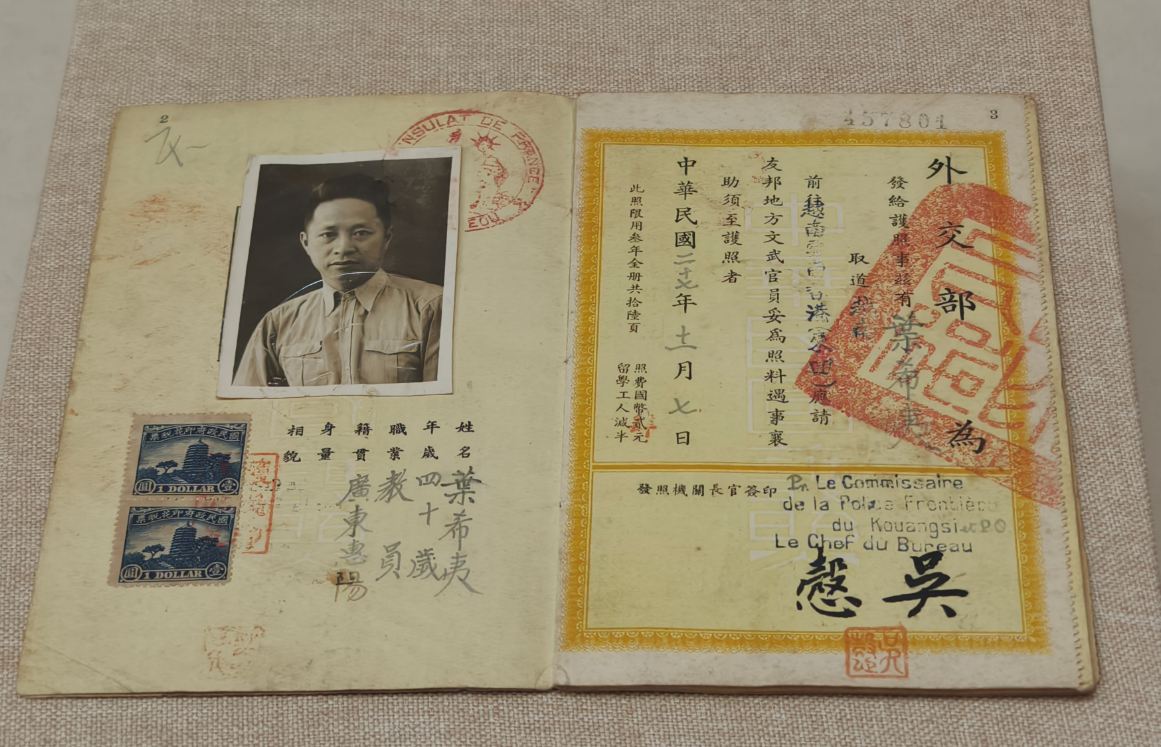 2
NSULAT DE FRANCE
國民政府印花稅票
圓 1 DOLLAR 壹
國民政府印花稅票
圓 1 DOLLAR 壹
姓名 葉希夷
年歲 四十歲
職業 教員
籍貫 廣東惠陽
身量
相貌
457801
3
外交部為
發給護照事茲有葉希夷
取道越南
前往越南香港應請
友邦地方文武官員妥為照料遇事襄
助須至護照者
中華民國二十七年十一月七日
此照限用叁年全冊共拾陸頁
照費國幣貳元
留學工人減半
發照機關長官簽印
Pr. Le Commissaire
de la Police Frontière
du Kouangsi
Le Chef du Bureau
吳愨